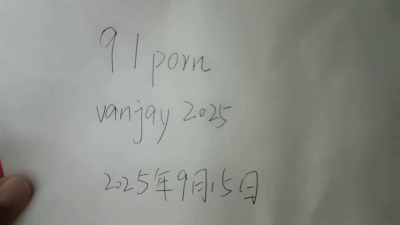 91porn
vanjay 2025
2025年9月15日